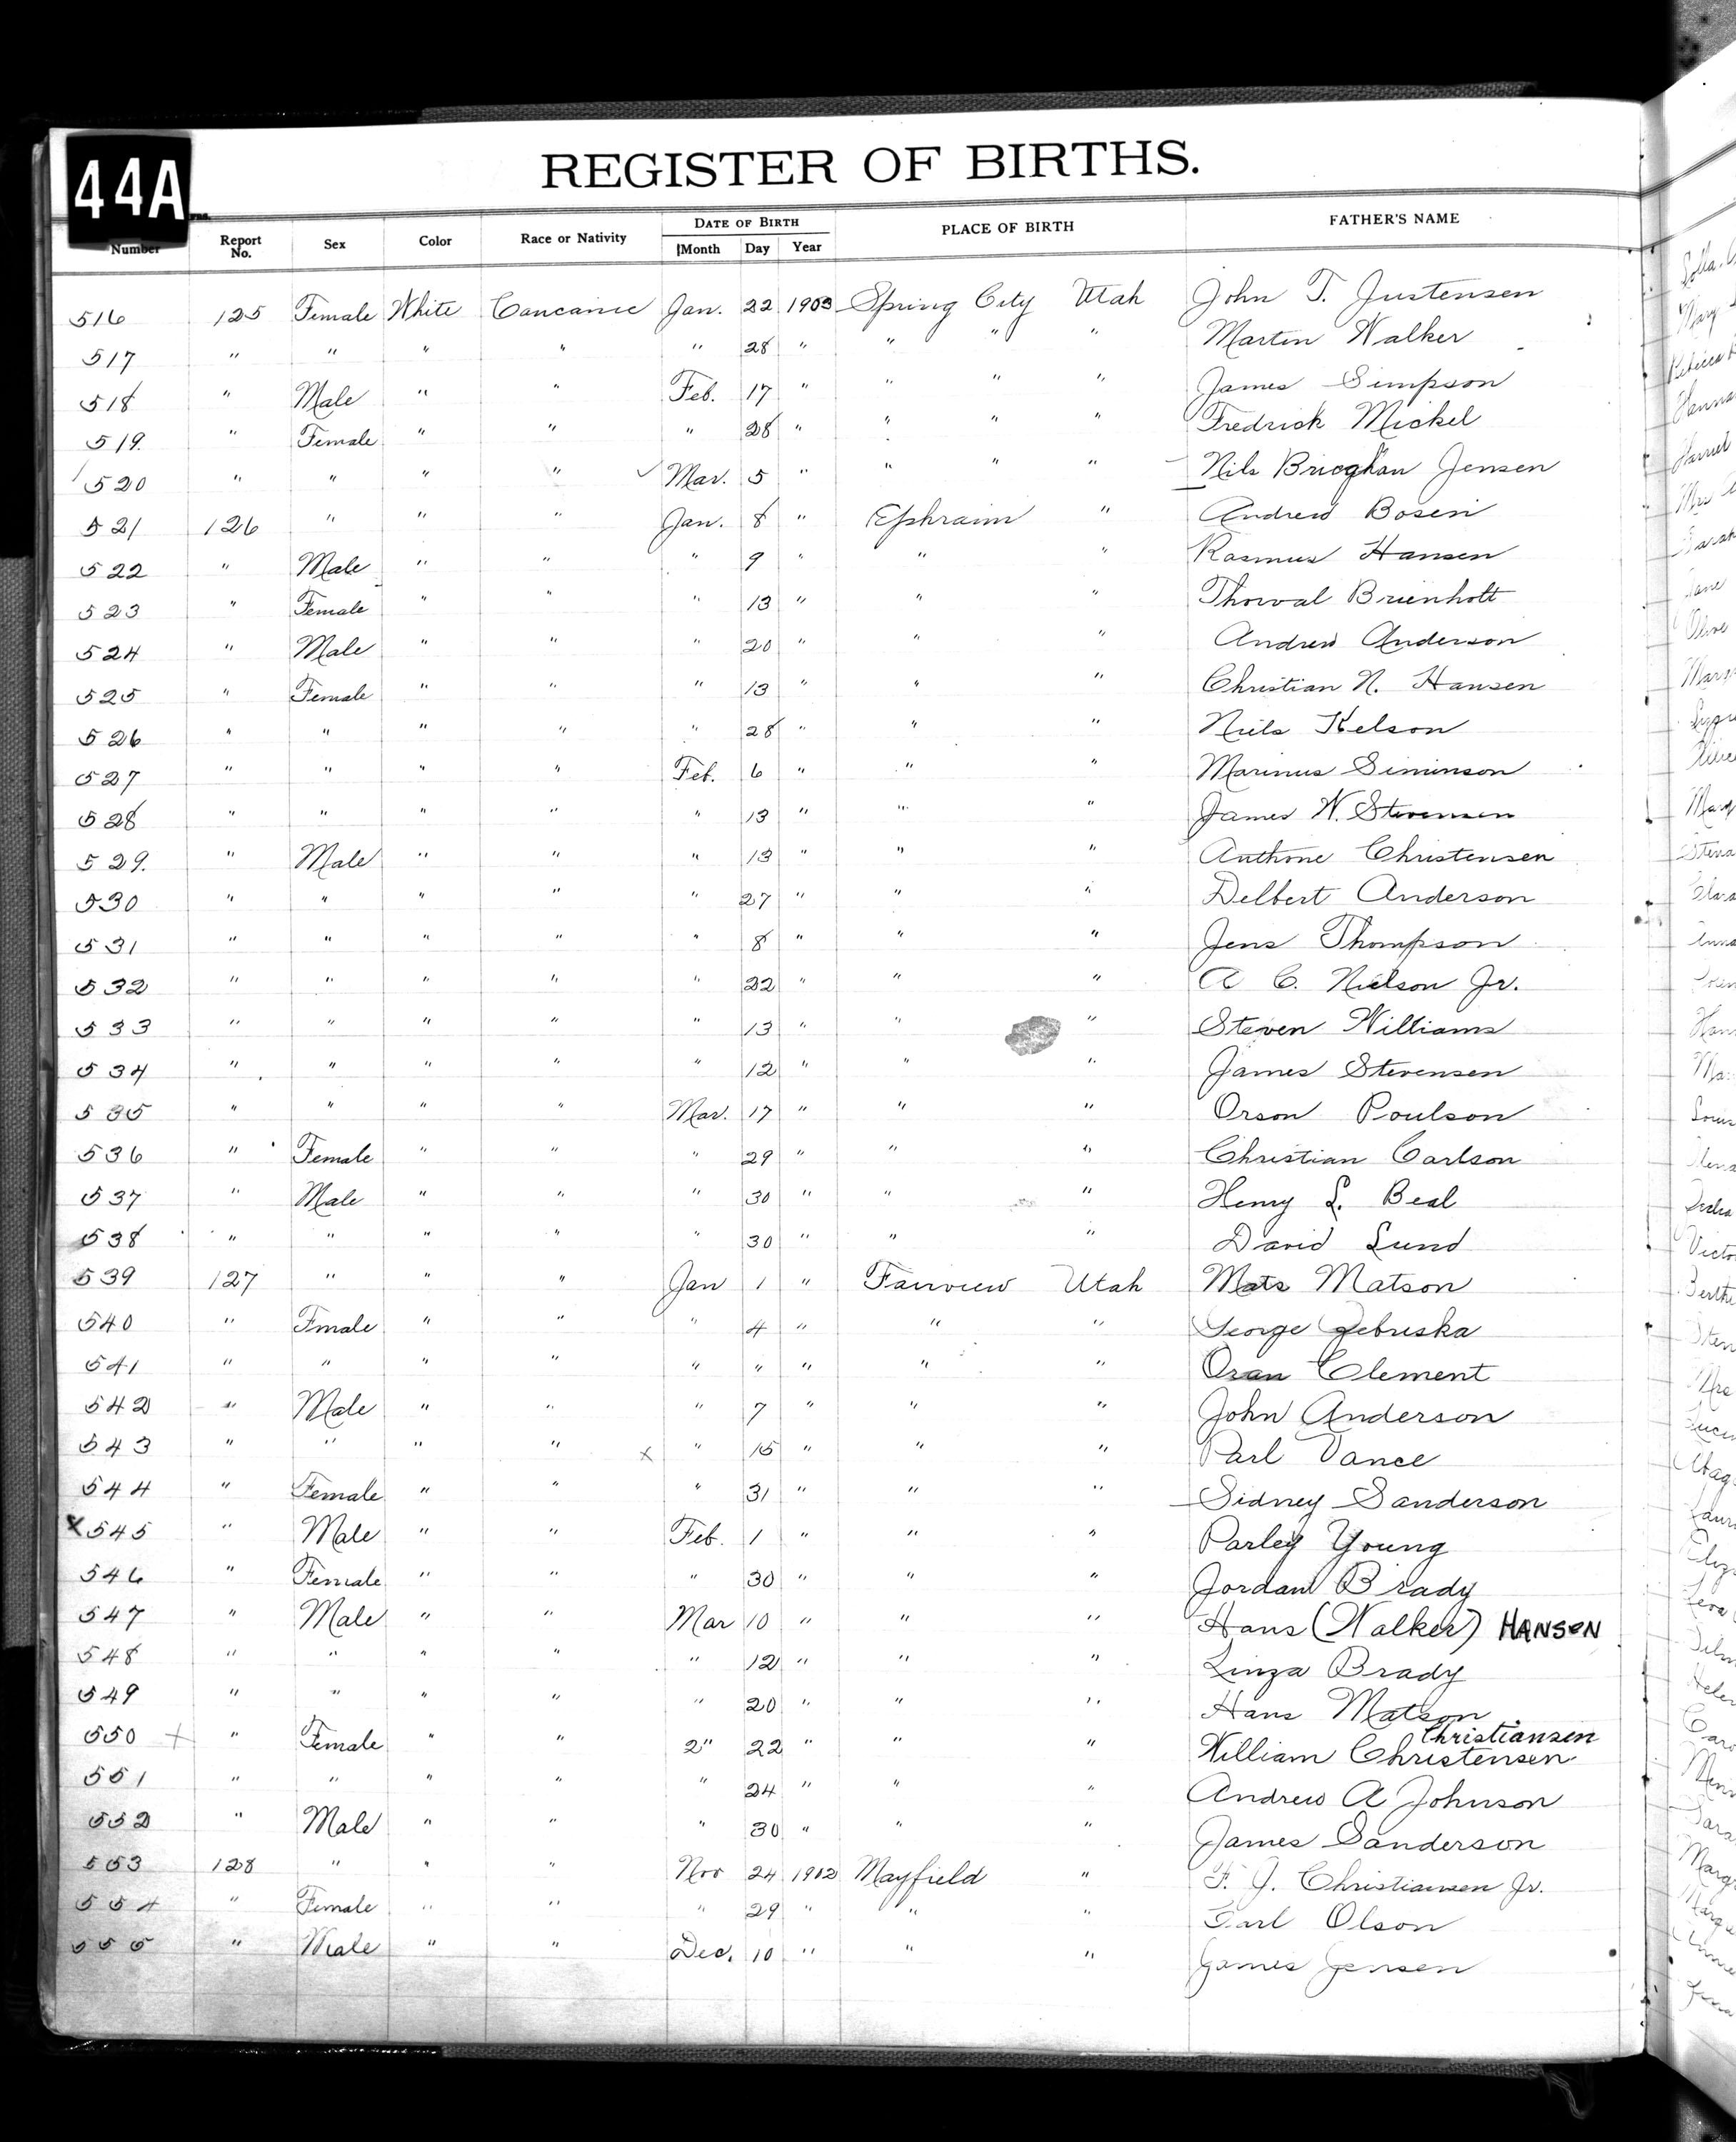 44A
REGISTER OF BIRTHS.
Number Report No. Sex Color Race or Nativity DATE OF BIRTH Month Day Year PLACE OF BIRTH FATHER'S NAME
516 125 Female White Caucanic Jan. 22 1903 Spring City Utah John T. Justensen
517 " " " " " 28 " " " " Martin Walker
518 " Male " " Feb. 17 " " " " James Simpson
519. " Female " " " 28 " " " " Fredrick Mickel
520 " " " " ✓ Mar. 5 " " " " Nils Jensen
521 126 " " " Jan. 8 " Ephraim " Andrew Bosen
522 " Male " " " 9 " " " Rasmus Hansen
523 " Female " " " 13 " " " Thorval Brienholt
524 " Male " " " 20 " " " Andrew Anderson
525 " Female " " " 13 " " " Christian N. Hansen
526 " " " " " 28 " " " Niels Kelson
527 " " " " Feb. 6 " " " Marinus Siminson
528 " " " " " 13 " " " James W. Stevensen
529. " Male " " " 13 " " " Anthone Christensen
530 " " " " " 27 " " " Delbert Anderson
531 " " " " " 8 " " " Jens Thompson
532 " " " " " 22 " " " A C. Nielson Jr.
533 " " " " " 13 " " " Steven Williams
534 " " " " " 12 " " " James Stevensen
535 " " " " Mar. 17 " " " Orson Poulson
536 " Female " " " 29 " " " Christian Carlson
537 " Male " " " 30 " " " Henry L. Beal
538 " " " " " 30 " " " David Lund
539 127 " " " Jan 1 " Fairview Utah Mats Matson
540 " Fmale " " " 4 " " " George Zebriska
541 " " " " " " " " " Oran Clement
542 " Male " " " 7 " " " John Anderson
543 " " " " x " 15 " " " Parl Vance
544 " Female " " " 31 " " " Sidney Sanderson
x 545 " Male " " Feb. 1 " " " Parley Young
546 " Female " " " 30 " " " Jordan Brady
547 " Male " " Mar 10 " " " Hans (Walker) HANSON
548 " " " " " 12 " " " Linza Brady
549 " " " " " 20 " " " Hans Matson
Christiansen
550 + " Female " " 2" 22 " " " William Christensen
551 " " " " " 24 " " " Andrew A Johnson
552 " Male " " " 30 " " " James Sanderson
553 128 " " " Nov 24 1902 Mayfield " F. J. Christiansen Jr.
554 " Female " " " 29 " " " Earl Olson
555 " Male " " Dec. 10 " " " James Jensen